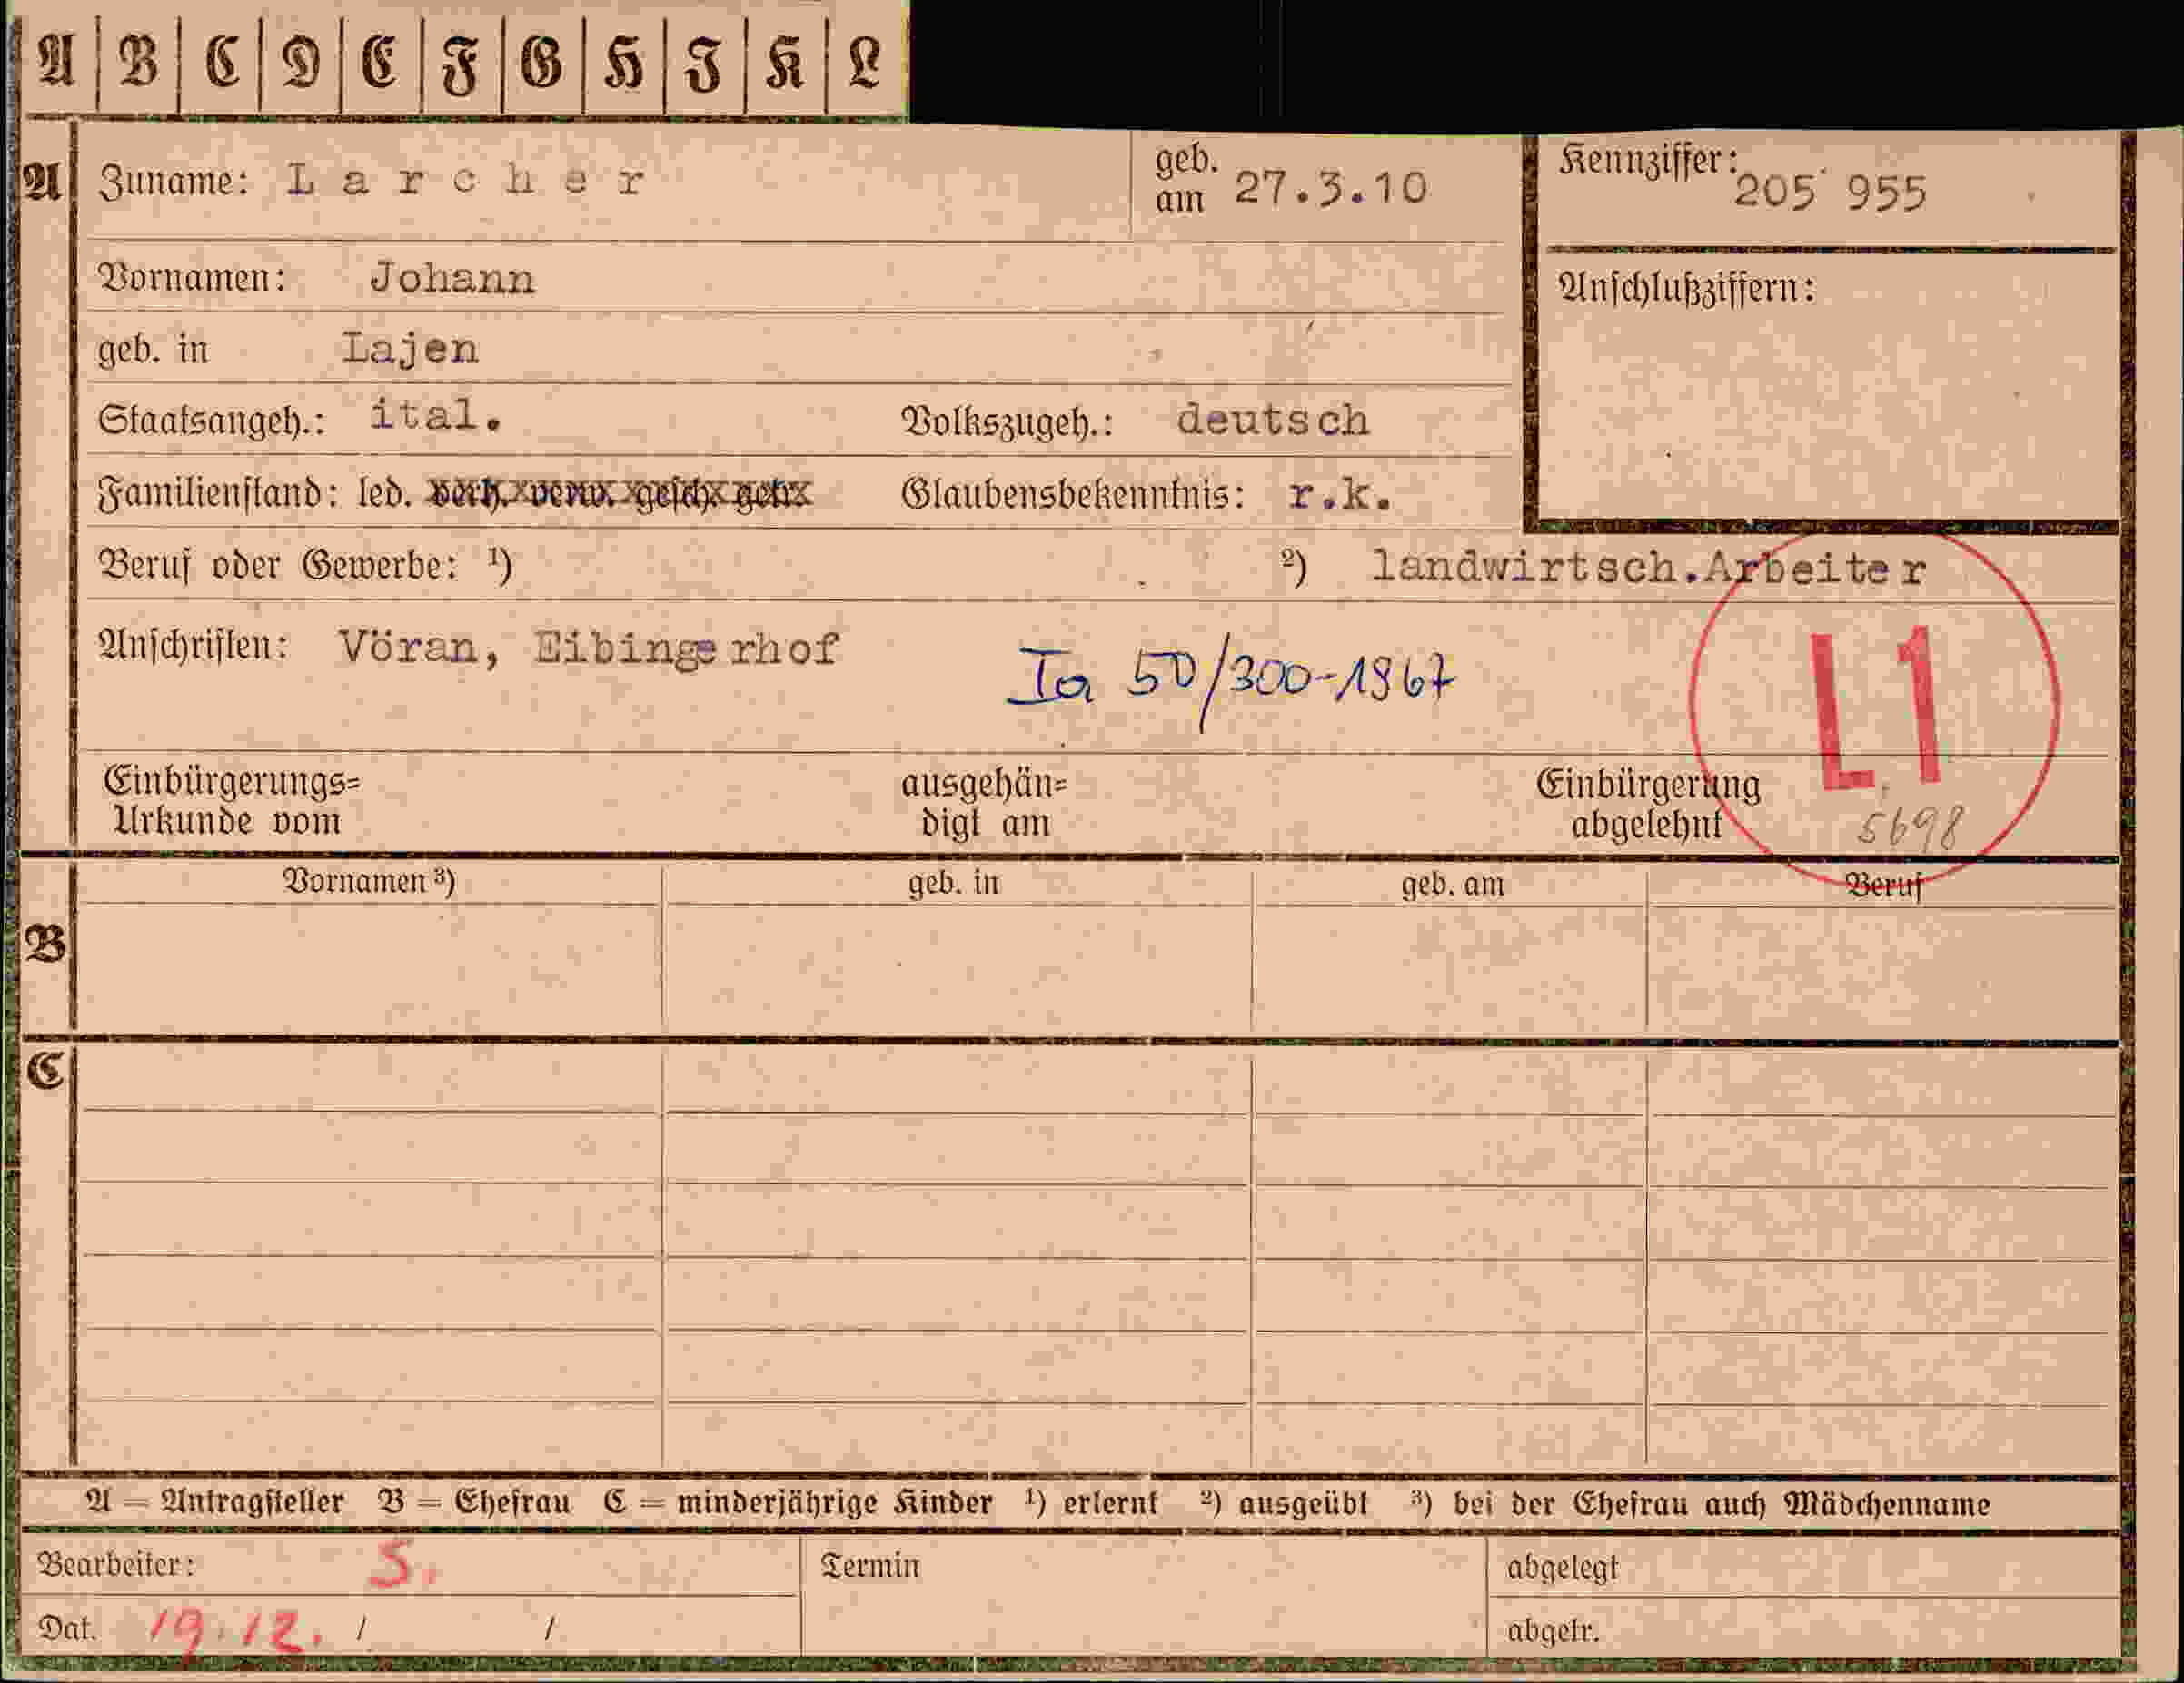 A B C D E F G H I K L
A Zuname: Larcher geb. am 27.3.10 Kennziffer: 205 955
Vornamen: Johann Anschlußziffern:
geb. in Lajen
Staatsangeh.: ital. Volkszugeh.: deutsch
Familienstand: led. verh. verw. gesch. getr. Glaubensbekenntnis: r.k.
Beruf oder Gewerbe: ¹) ²) landwirtsch.Arbeiter
Anschriften: Vöran, Eibingerhof Ia 50/300-1967 L1
Einbürgerungs= ausgehän= Einbürgerung
Urkunde vom digt am abgelehnt 5698
Vornamen ³) geb. in geb. am Beruf
B
C
A = Antragsteller B = Ehefrau C = minderjährige Kinder ¹) erlernt ²) ausgeübt ³) bei der Ehefrau auch Mädchenname
Bearbeiter: S. Termin abgelegt
Dat. 19.12. / / abgetr.